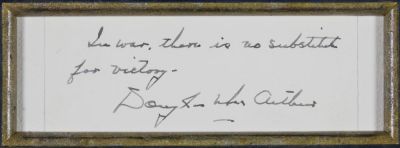 In war, there is no substitute
for victory.
Douglas MacArthur